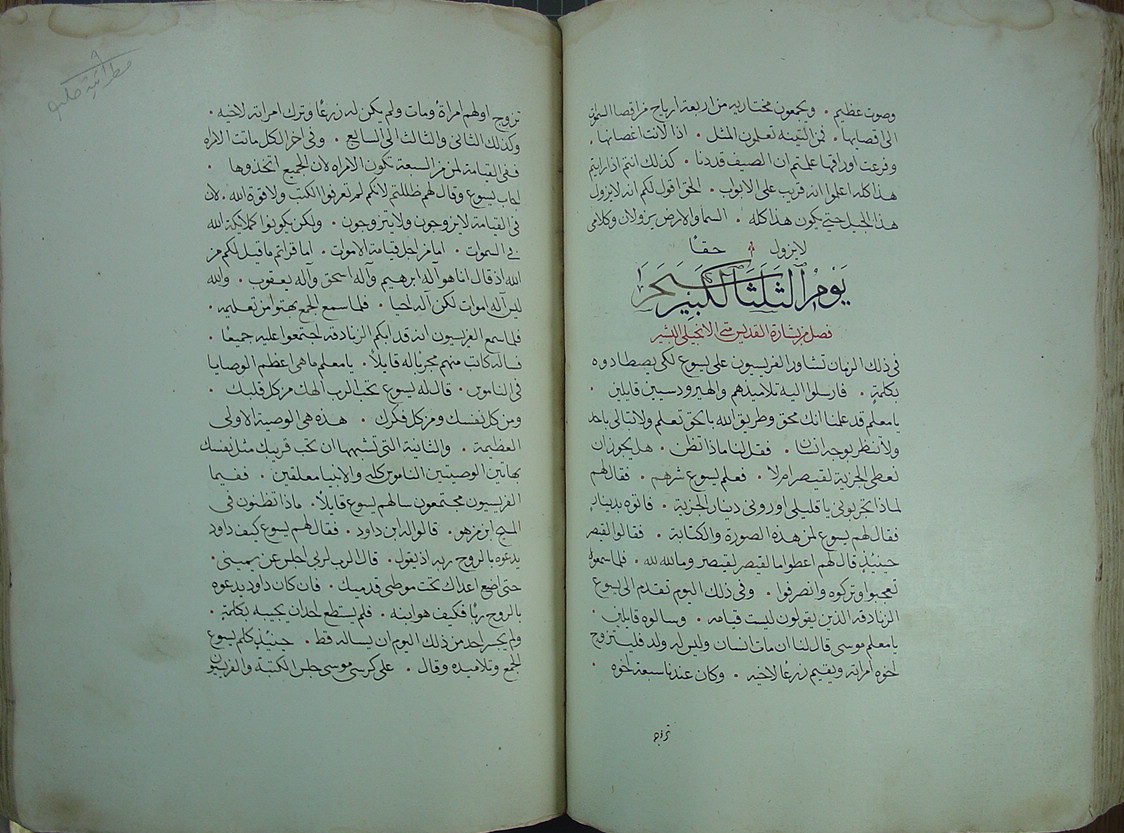 وصوت عظيم . ويجمعون مختاريه من اربعة ارياح من اقصا السموات
الى اقصايها . فمن التينه تعلمون المثل . اذا لانت اغصانها
وفرعت اوراقها علمتم ان الصيف قد دنا . كذلك انتم اذا رايتم
هذا كله اعلموا انه قريب على الابواب . الحق اقول لكم انه لا يزول
هذا الجيل حتي يكون هذا كله . السما والارض يزولان وكلامي
لا يزول حقا
يوم الثلثا الكبير سحرا
فصل من بشارة القديس متى الانجيلي البشير
في ذلك الزمان تشاور الفريسيون على يسوع لكي يصطادوه
بكلمة . فارسلوا اليه تلاميذهم والهيرودسيين قايلين
يا معلم قد علمنا انك محق وطريق الله بالحق تعلم ولا تبالي باحد
ولا تنظر لوجه انسان . فقل لنا ماذا تظن . هل يجوز ان
نعطى الجزية لقيصر ام لا . فعلم يسوع شرهم . فقال لهم
لماذا تجربوني يا قليلي اوروني دينار الجزية . فاتوه بدينار
فقال لهم يسوع لمن هذه الصورة والكتابة . فقالوا لقيصر
حينيذ قال لهم اعطوا ما لقيصر لقيصر وما لله لله . فلما سمعوا
تعجبوا وتركوه وانصرفوا . وفي ذلك اليوم تقدم الى يسوع
الزنادقه الذين يقولون ليست قيامه . وسالوه قايلين
يا معلم موسى قال لنا ان مات انسان وليس له ولد فليتزوج
اخوه امراته ويقيم زرعا لاخيه . وكان عندنا سبعة اخوه
تزوج
تزوج اولهم امراة ومات ولم يكن له زرعا وترك امراته لاخيه .
وكذلك الثاني والثالث الى السابع . وفي اخر الكل ماتت الامراه
ففي القيامة لمن من السبعة تكون الامراه لان الجميع اتخذوها
اجاب يسوع وقال لهم ضللتم لانكم لم تعرفوا الكتب ولا قوة الله . لان
في القيامة لا يزوجون ولا يتزوجون . ولكن يكونوا كملايكة الله
في السموات . اما من اجل قيامة الاموات . اما قراتم ما قيل لكم من
الله اذ قال انا هو آله ابرهيم وآله اسحق وآله يعقوب . والله
ليس آله اموات لكن آله احيا . فلما سمع الجمع بهتوا من تعليمه .
فلما سمع الفريسيون انه قد ابكم الزنادقه اجتمعوا عليه جميعا .
فساله كاتب منهم مجربا له قايلا . يا معلم ما هي اعظم الوصايا
في الناموس . قال له يسوع تحب الرب الهك من كل قلبك .
ومن كل نفسك ومن كل فكرك . هذه هي الوصية الاولى
العظيمة . والثانية التى تشبهها ان تحب قريبك مثل نفسك
بهاتين الوصيتين الناموس كله والانبيا معلقين . ففيما
الفريسيون مجتمعون سالهم يسوع قايلا . ماذا تظنون في
المسيح ابن من هو . قالوا له ابن داود . فقال لهم يسوع كيف داود
يدعوه بالروح ربه اذ يقول . قال الرب لربي اجلس عن يميني .
حتى اضع اعداك تحت موطى قدميك . فان كان داود يدعوه
بالروح ربا فكيف هو ابنه . فلم يستطع احد ان يجيبه بكلمة .
ولم يجسر احد من ذلك اليوم ان يساله قط . حينيذ كلم يسوع
الجمع وتلاميذه وقال . على كرسي موسى جلس الكتبة والفريسيون